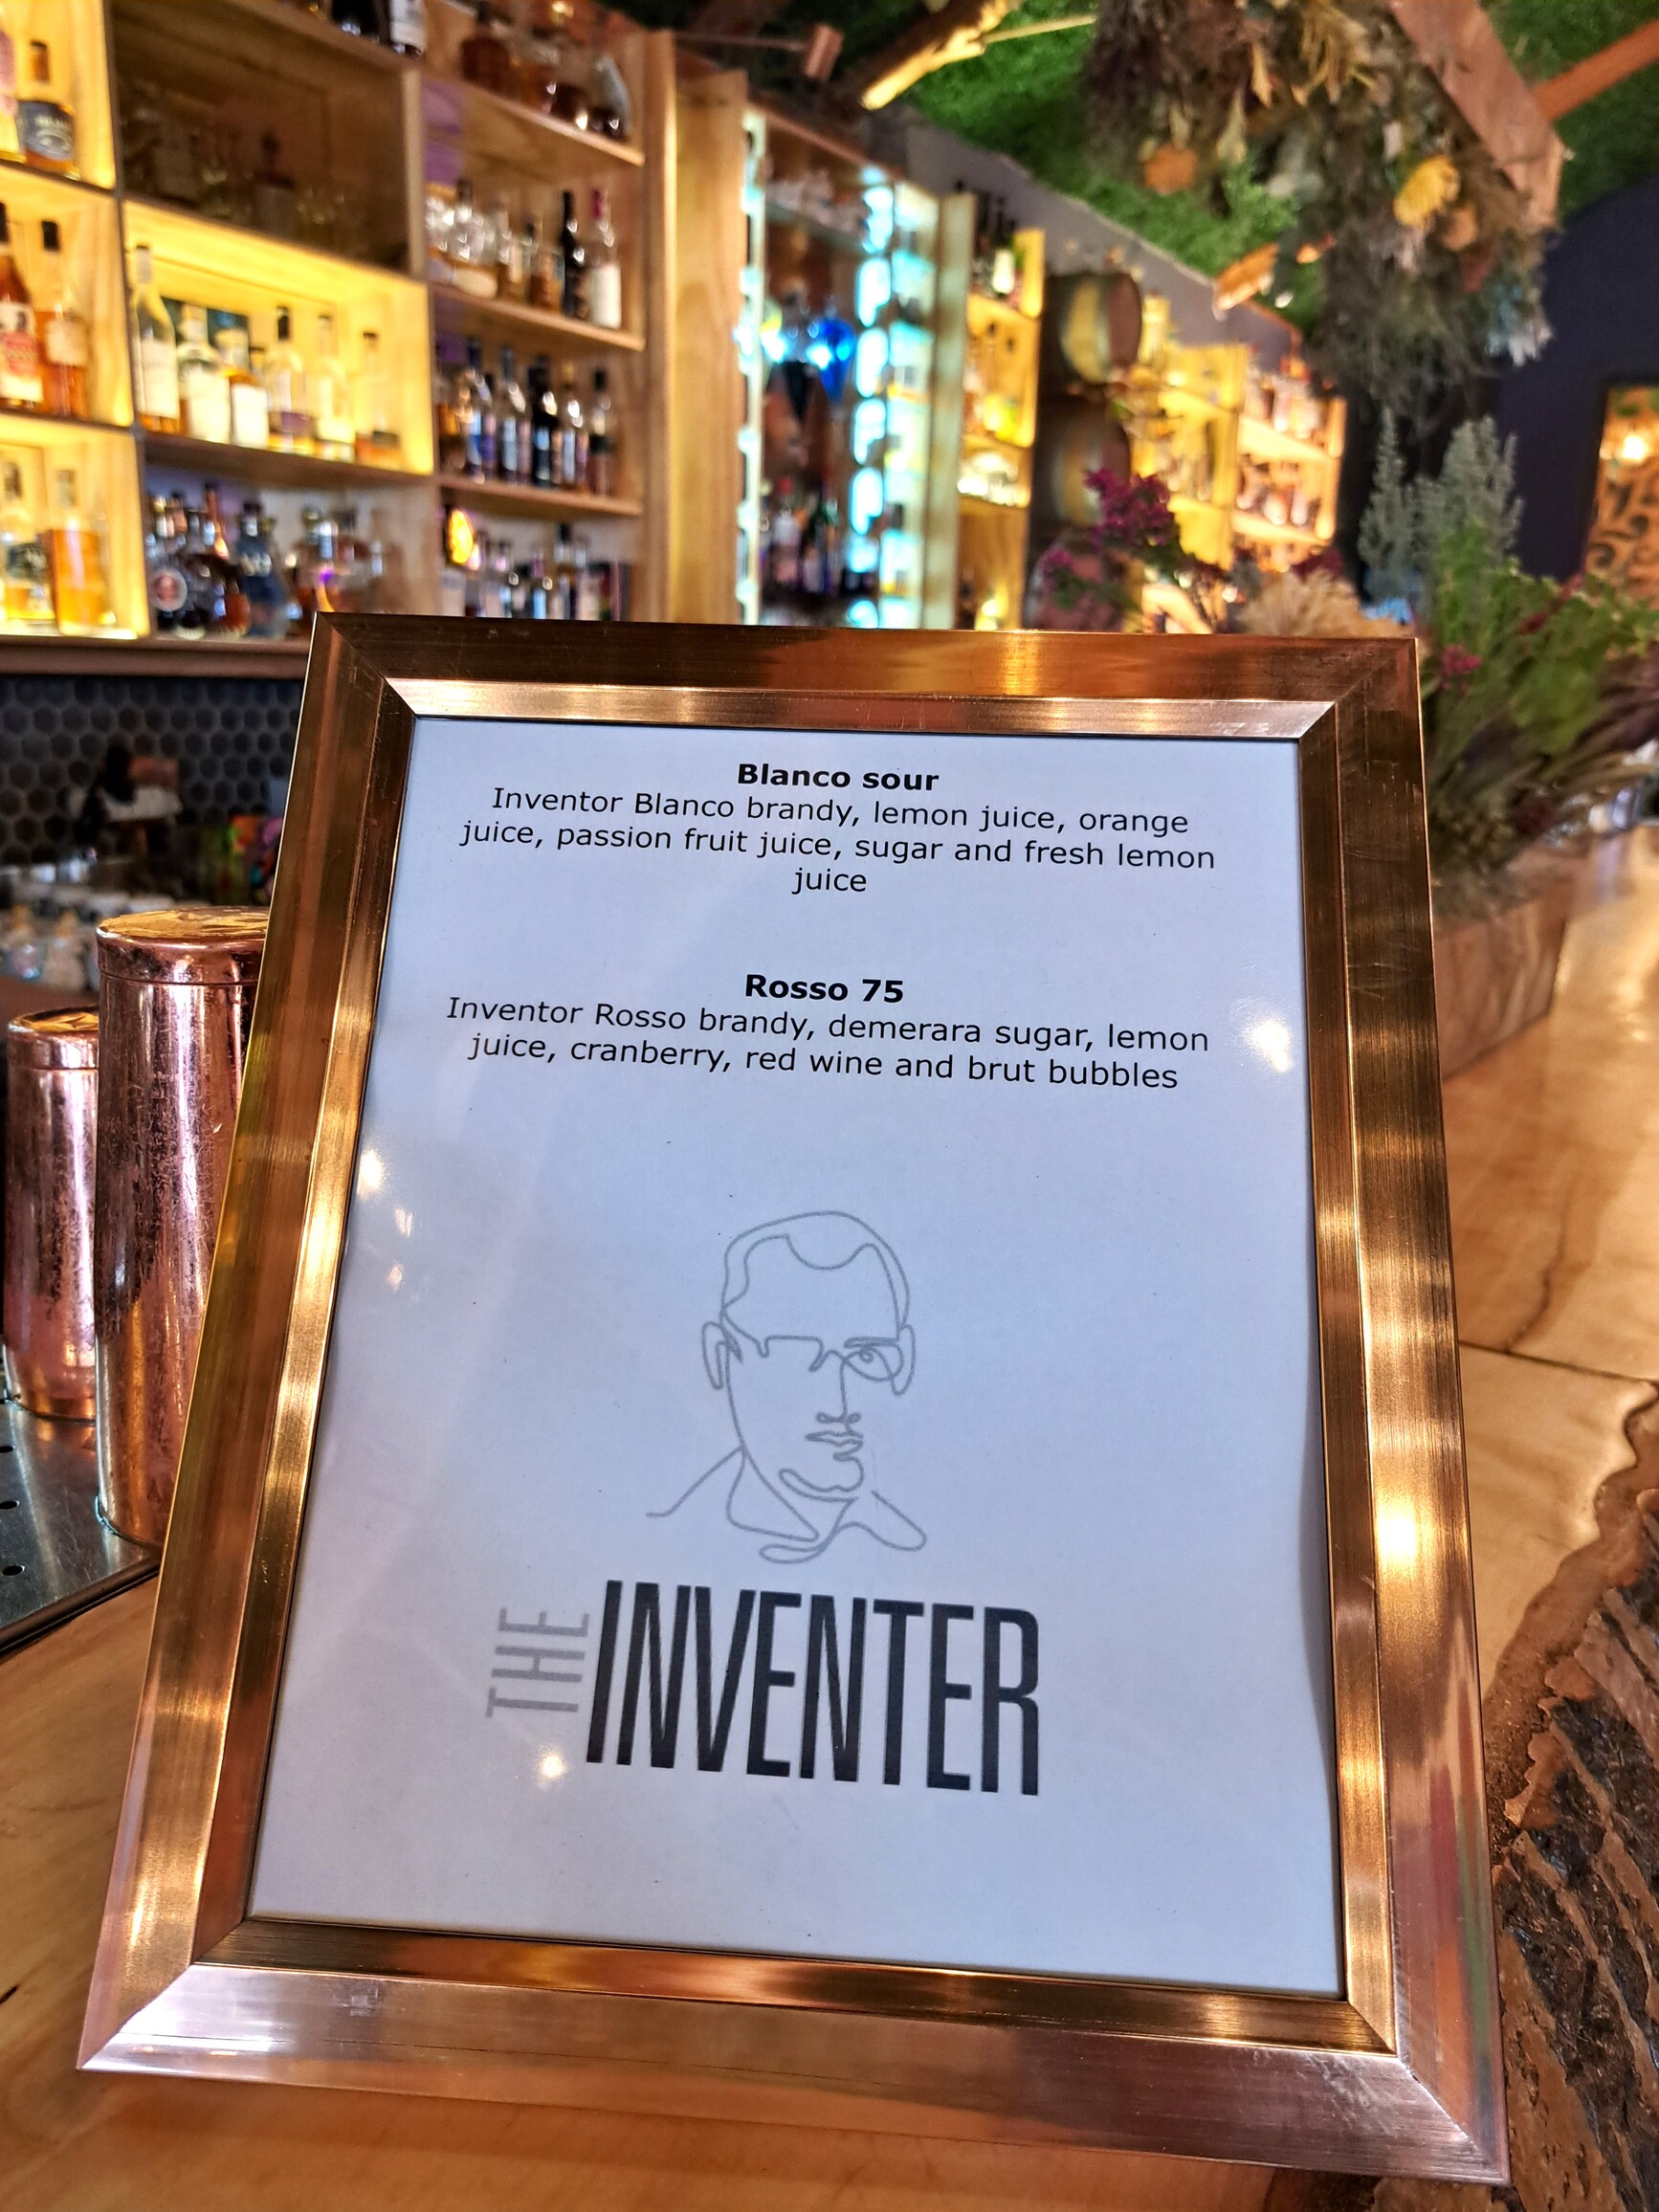 Blanco sour
Inventor Blanco brandy, lemon juice, orange
juice, passion fruit juice, sugar and fresh lemon
juice
Rosso 75
Inventor Rosso brandy, demerara sugar, lemon
juice, cranberry, red wine and brut bubbles
THE INVENTER